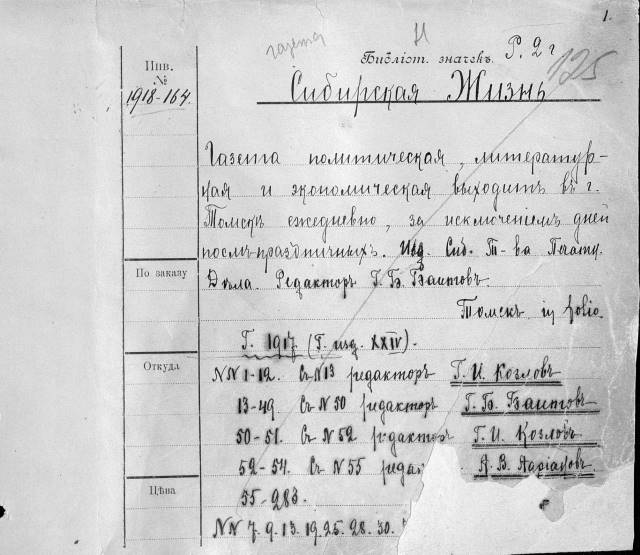 1.
газета
И
Инв.
№
1918-164.
Библіот. значекъ Р. 2 г
125
Сибирская Жизнь
Газета политическая, литератур-
ная и экономическая выходитъ въ г.
Томскѣ ежедневно, за исключеніемъ дней
послѣпраздничныхъ. Изд. Сиб. Т-ва Печатн.
По заказу
Дѣла. Редакторъ Г. Б. Баитовъ.
Томскъ in folio.
Г. 1917 (Г. изд. XXIV).
Откуда
NN 1-12. Съ N 13 редакторъ Г. И. Козловъ
13-49. Съ N 50 редактор Г. Б. Баитовъ
50-51. Съ N 52 редакторъ Г. И. Козловъ
52-54. Съ N 55 редак А. В. Адріановъ
Цѣна
55-283.
NN 7. 9. 13. 19. 25. 28. 30.